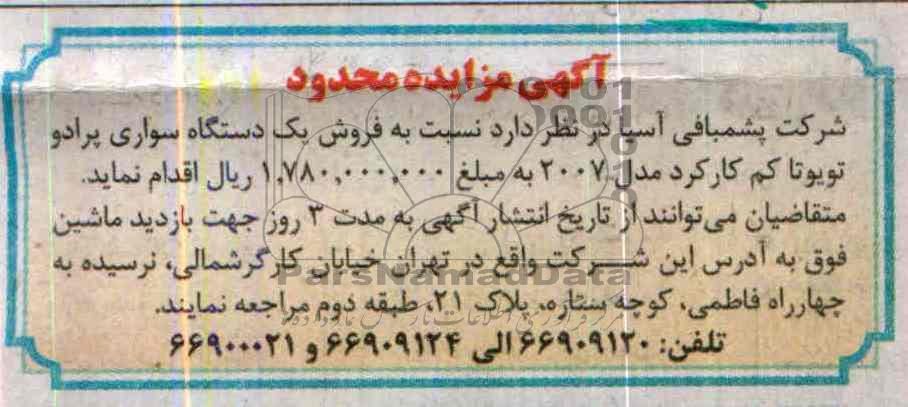 آگهی مزایده محدود
شرکت پشمبافی آسیا در نظر دارد نسبت به فروش یک دستگاه سواری پرادو
تویوتا کم کارکرد مدل ۲۰۰۷ به مبلغ ۱,۷۸۰,۰۰۰,۰۰۰ ریال اقدام نماید.
متقاضیان می‌توانند از تاریخ انتشار آگهی به مدت ۳ روز جهت بازدید ماشین
فوق به آدرس این شرکت واقع در تهران خیابان کارگرشمالی، نرسیده به
ParsNamadData
چهارراه فاطمی، کوچه ستاره، پلاک ۲۱، طبقه دوم مراجعه نمایند.
تلفن: ۶۶۹۰۹۱۲۰ الی ۶۶۹۰۹۱۲۴ و ۶۶۹۰۰۰۲۱